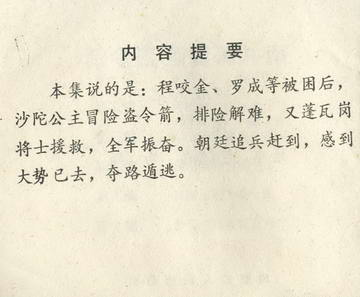 内容提要
本集说的是：程咬金、罗成等被困后，
沙陀公主冒险盗令箭，排险解难，又蓬瓦岗
将士援救，全军振奋。朝廷追兵赶到，感到
大势已去，夺路遁逃。